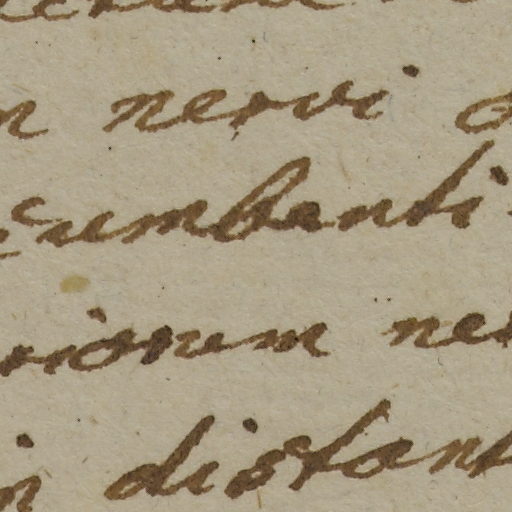 n nervi
cumbenti
riorum ner
in distant